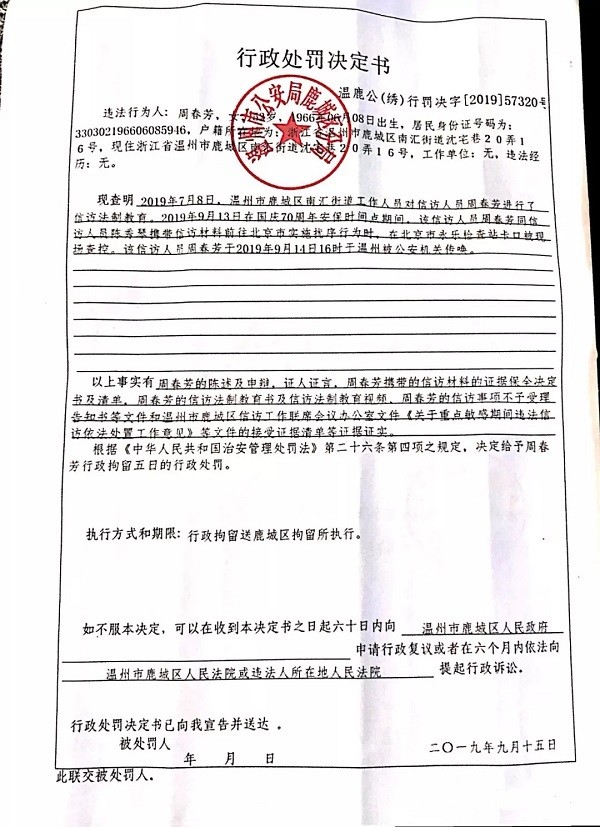 行政处罚决定书
温鹿公(绣)行罚决字[2019]57320号
违法行为人：周春芳，女，53岁，1966年06月08日出生，居民身份证号码为：
330302196606085946，户籍所在地为：浙江省温州市鹿城区南汇街道沈宅巷20弄1
6号，现住浙江省温州市鹿城区南汇街道沈宅巷20弄16号，工作单位：无，违法经
历：无。
现查明 2019年7月8日，温州市鹿城区南汇街道工作人员对信访人员周春芳进行了
信访法制教育。2019年9月13日在国庆70周年安保时间点期间，该信访人员周春芳同信
访人员陈秀琴携带信访材料前往北京市实施扰序行为时，在北京市永乐检查站卡口被现
场查控。该信访人员周春芳于2019年9月14日16时于温州被公安机关传唤。
以上事实有 周春芳的陈述及申辩，证人证言，周春芳携带的信访材料的证据保全决定
书及清单，周春芳的信访法制教育书及信访法制教育视频、周春芳的信访事项不予受理
告知书等文件和温州市鹿城区信访工作联席会议办公室文件《关于重点敏感期间违法信
访依法处置工作意见》等文件的接受证据清单等证据证实。
根据《中华人民共和国治安管理处罚法》第二十六条第四项之规定，决定给予周春
芳行政拘留五日的行政处罚。
执行方式和期限：行政拘留送鹿城区拘留所执行。
如不服本决定，可以在收到本决定书之日起六十日内向 温州市鹿城区人民政府
申请行政复议或者在六个月内依法向
温州市鹿城区人民法院或违法人所在地人民法院 提起行政诉讼。
行政处罚决定书已向我宣告并送达 。
被处罚人
年 月 日
二〇一九年九月十五日
此联交被处罚人。
温州市公安局鹿城区分局